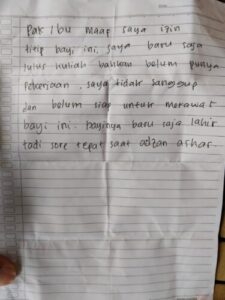 Pak / Ibu maap saya izin
titip bayi ini. saya baru saja
lulus kuliah bahkan belum punya
pekerjaan, saya tidak sanggup
dan belum siap untuk merawat
bayi ini. bayinya baru saja lahir
tadi sore tepat saat adzan ashar